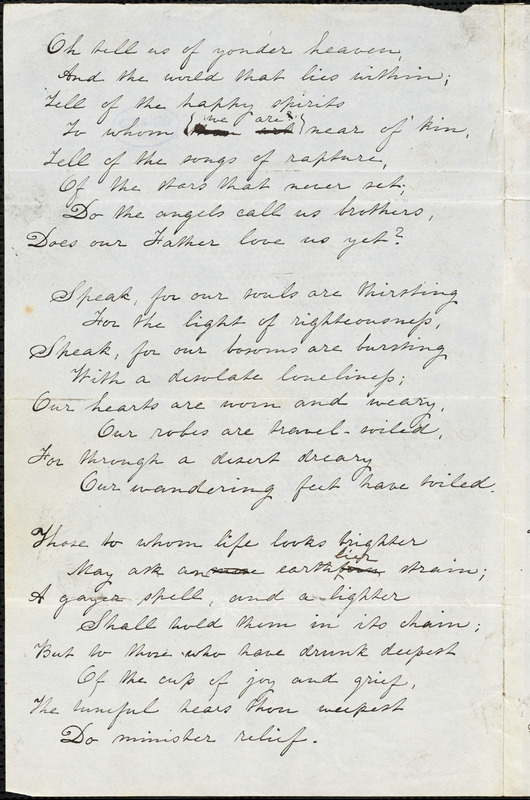 Oh tell us of yonder heaven,
And the world that lies within;
Tell of the happy spirits
To whom {we are} near of kin,
Tell of the songs of rapture,
Of the stars that never set;
Do the angels call us brothers,
Does our Father love us yet?
Speak, for our souls are thirsting
For the light of righteousness,
Speak, for our bosoms are bursting
With a desolate loneliness;
Our hearts are worn and weary,
Our robes are travel-soiled,
For through a desert dreary
Our wandering feet have toiled.
Those to whom life looks brighter
May ask an earthlier strain;
A gayer spell, and a lighter
Shall hold them in its chain;
But to those who have drunk deepest
Of the cup of joy and grief,
The tuneful tears thou weepest
Do minister relief.